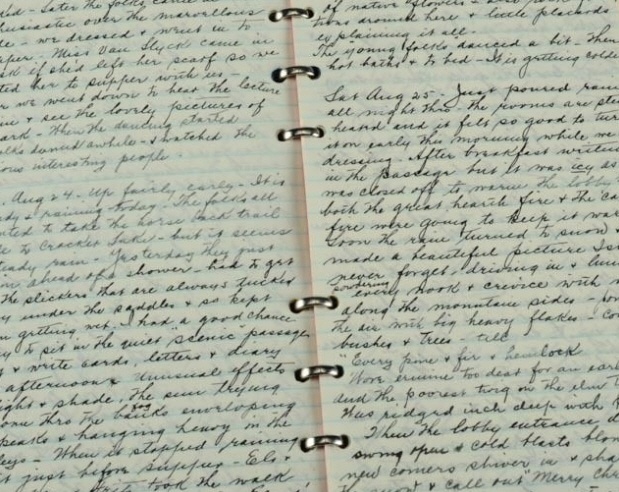 - Later the folks came in
husiastic over the marvellous
- we dressed & went in to
Miss Van Slyck came in
if she'd left her scarf so we
ted her to supper with us
we went down to hear the lecture
& see the lovely pictures of
When the dancing started
danced awhile & watched the
interesting people.
Aug 24. Up fairly early - It is
& raining today - The folks all
to take the horse back trail
to Cracker Lake - but it seems
steady rain - Yesterday they just
ahead of a shower - had to get
the slickers that are always tucked
under the saddles & so kept
getting wet. I had a good chance
to sit in the quiet "scenic" passage
& write cards, letters & diary
afternoon & unusual effects
light & shade, The sun trying
thro the enveloping
peaks & hanging heavy on the
When it stopped raining
just before supper - Els &
took the walk
of native flowers
around here & little placards
explaining it all -
The young folks danced a bit - Then
hot baths & to bed - It is getting colder
Sat Aug 25 - Just poured rain
all night thro. The rooms are
heated and it felt so good to turn
it on early this morning while we
dressing. After breakfast
in the passage but it was icy as
was closed off to warm the lobby
both the great hearth fire & the
fire were going to keep it
soon the rain turned to snow &
made a beautiful picture
never forget, driving in &
powdering every nook & crevice with
along the mountain sides -
the air with big heavy flakes -
bushes & trees - till
"Every pine & fir & hemlock
Wore ermine too dear for an earl
and the poorest twig on the elm tree
Was ridged inch deep with
When the lobby entrance
swung open & cold blasts
new comers shiver in &
& call out "Merry